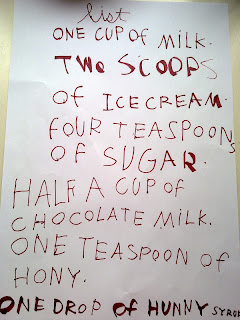 list
ONE CUP OF MILK.
TWO SCOOPS
OF ICECREAM.
FOUR TEASPOONS
OF SUGAR.
HALF A CUP OF
CHOCOLATE MILK.
ONE TEASPOON OF
HONY.
ONE DROP OF HUNNY